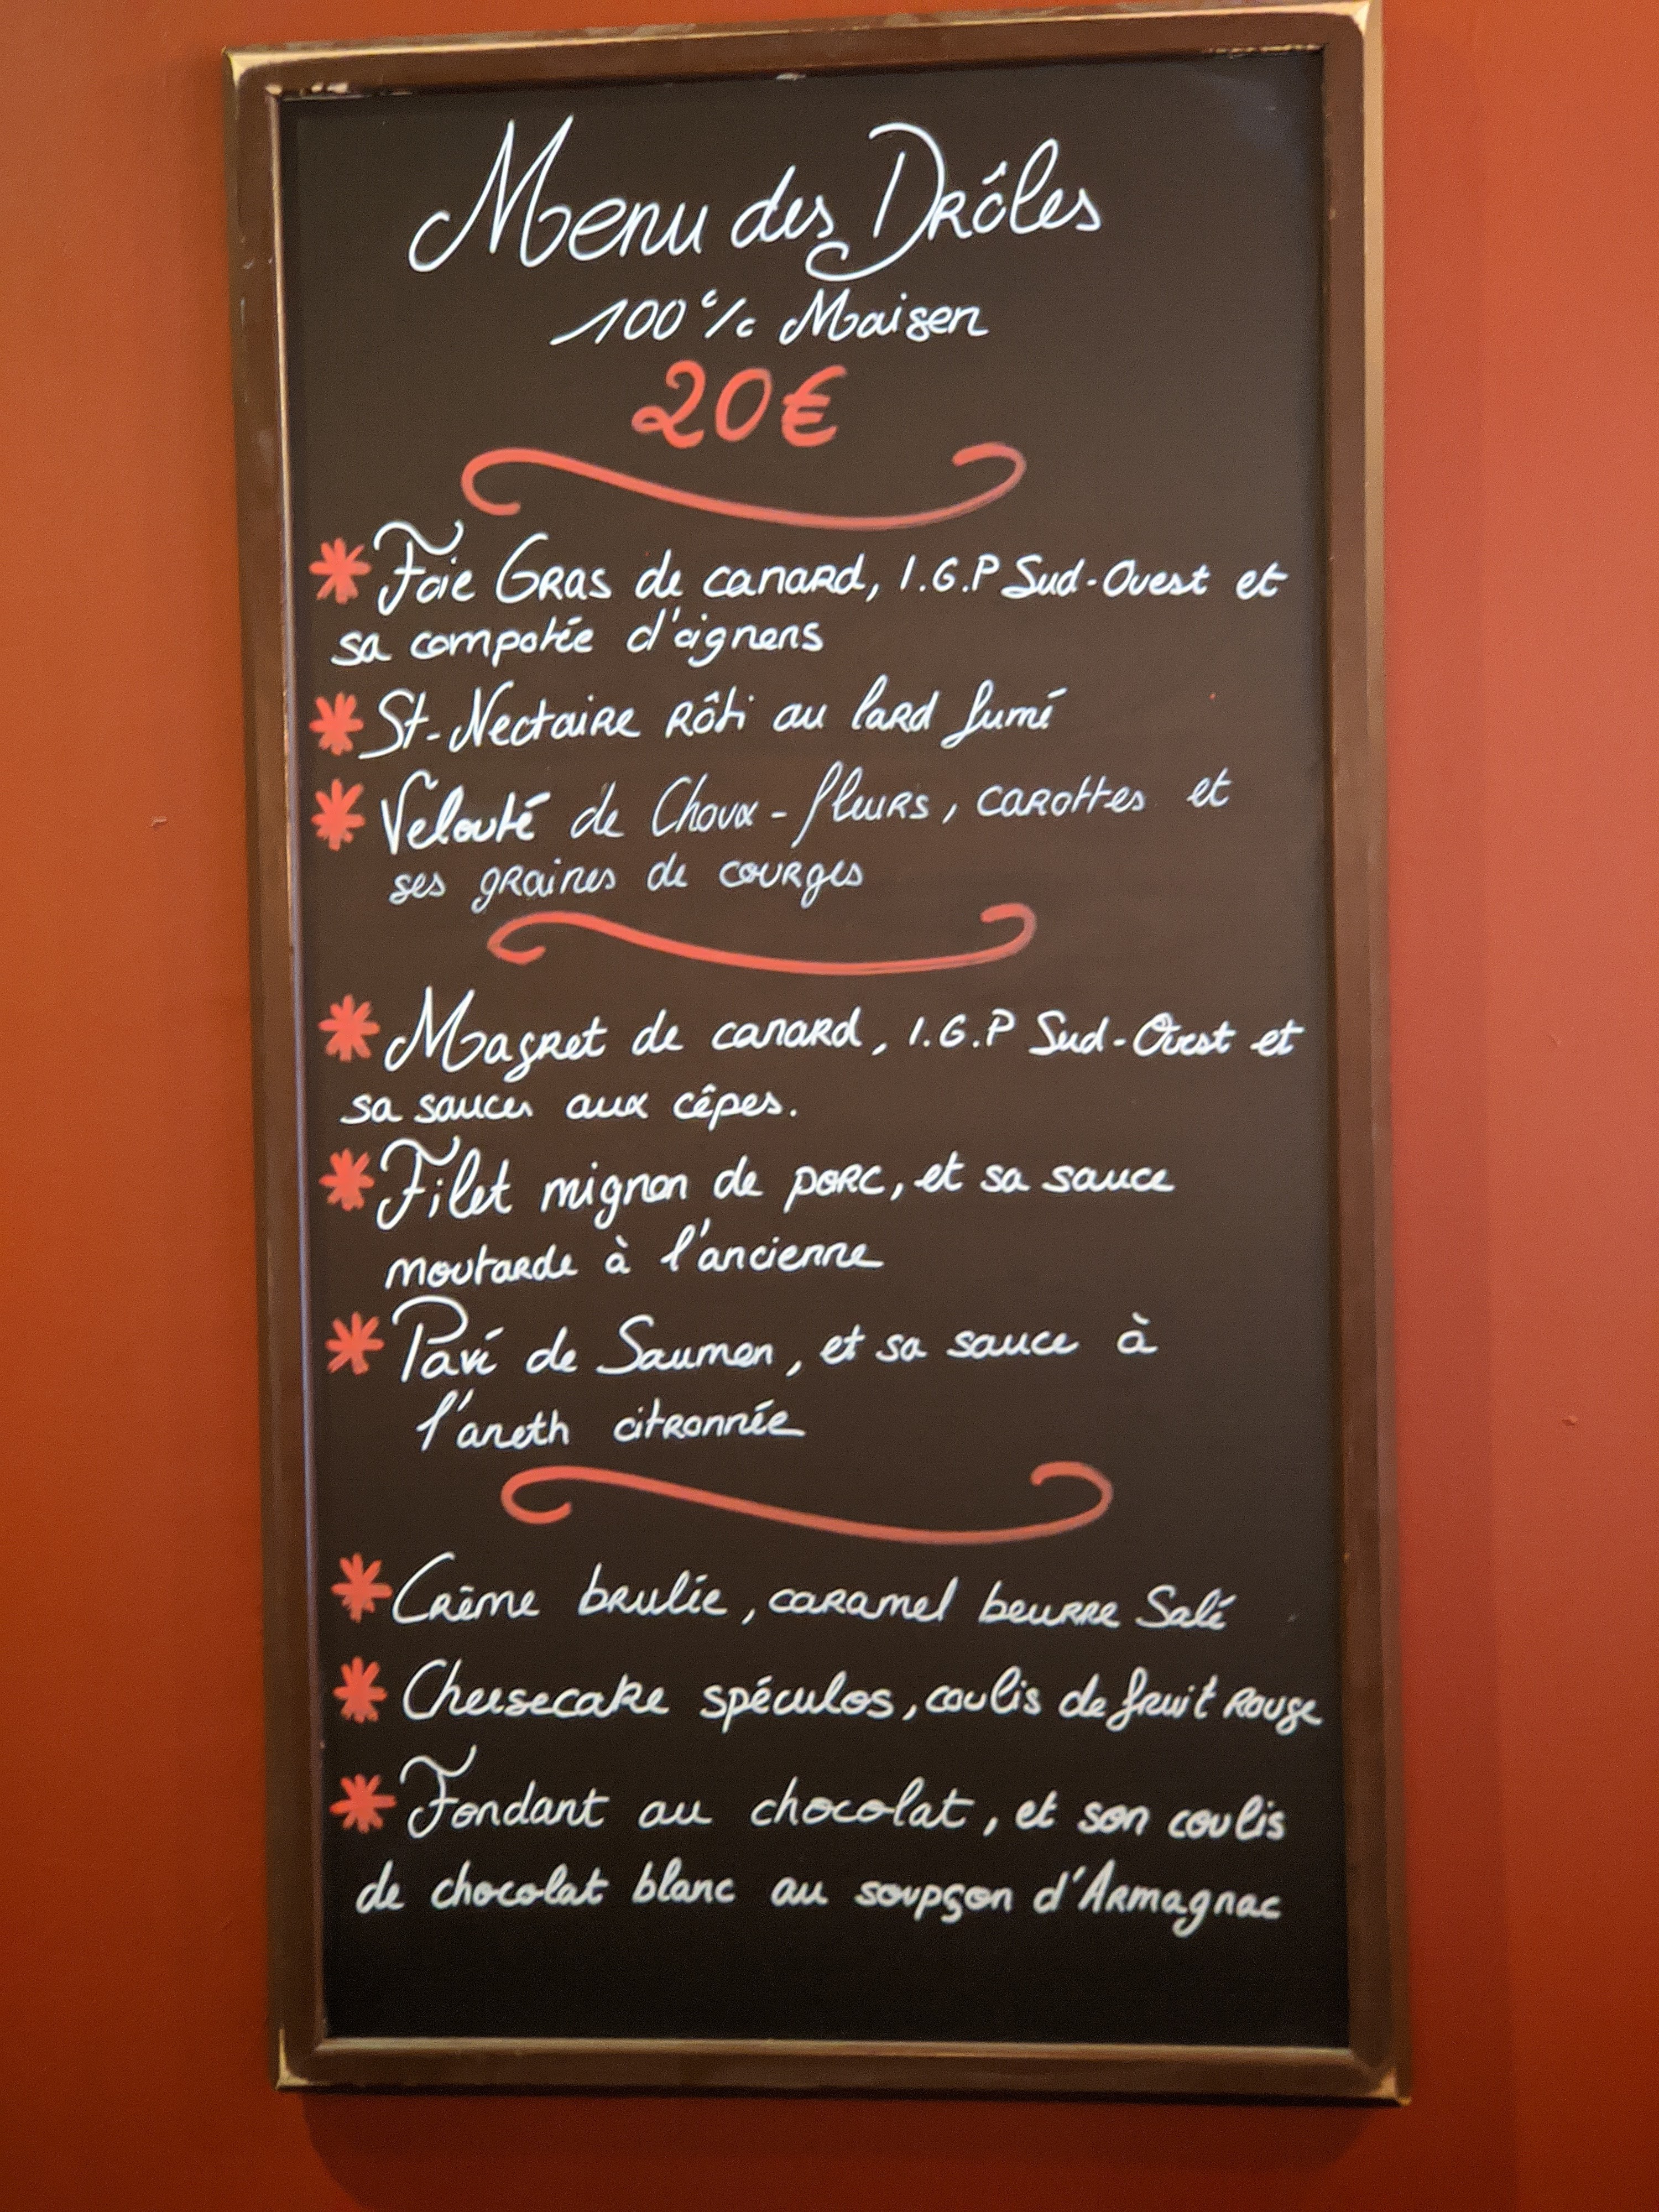 Menu des Drôles
100% Maison
20€
Foie Gras de canard, I.G.P Sud-Ouest et
sa compotée d'oignons
St-Nectaire rôti au lard fumé
Velouté de Choux-fleurs, carottes et
ses graines de courges
Magret de canard, I.G.P Sud-Ouest et
sa sauces aux cêpes.
Filet mignon de porc, et sa sauce
moutarde à l'ancienne
Pavé de Saumon, et sa sauce à
l'aneth citronnée
Crème brulée, caramel beurre Salé
Cheesecake spéculos, coulis de fruit rouge
Fondant au chocolat, et son coulis
de chocolat blanc au soupçon d'Armagnac